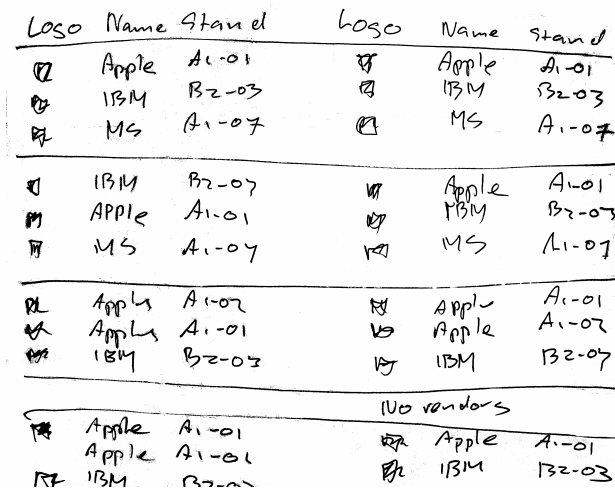 Logo Name Stand Logo Name Stand
Apple A1-01 Apple A1-01
IBM B2-03 IBM B2-03
MS A1-07 MS A1-07
IBM B2-07 Apple A1-01
APPle A1-01 IBM B2-03
MS A1-07 MS A1-07
Apple A1-02 Apple A1-01
Apple A1-01 Apple A1-02
IBM B2-03 IBM B2-07
No vendors
Apple A1-01 Apple A1-01
Apple A1-01 IBM B2-03
IBM